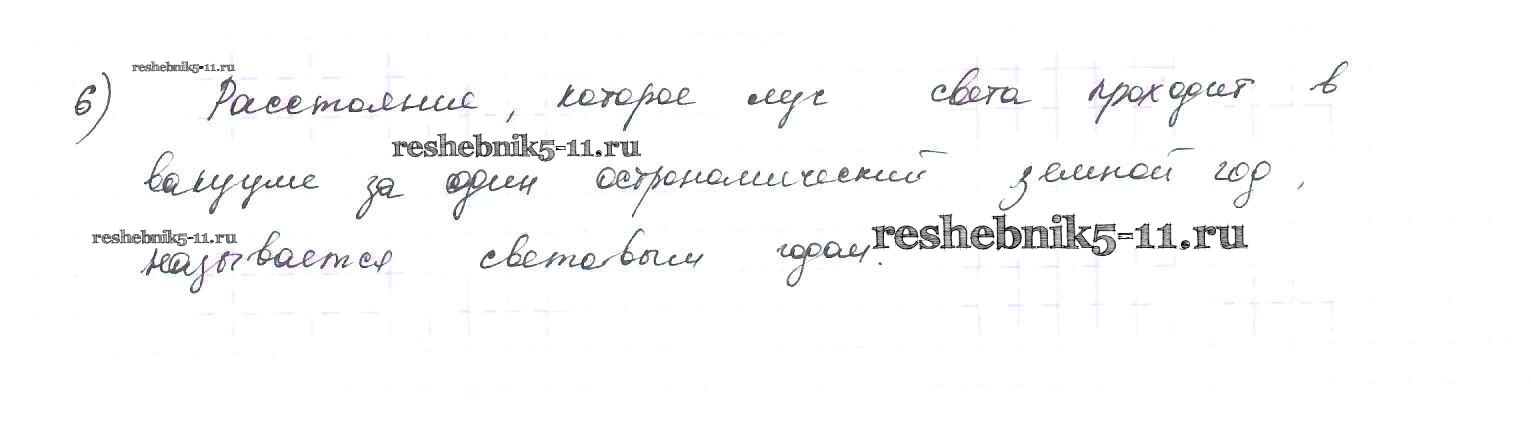 reshebnik5-11.ru
6) Расстояние, которое луч света проходит в
reshebnik5-11.ru
вакууме за один острономический земной год,
reshebnik5-11.ru
называется световым годом.
reshebnik5-11.ru